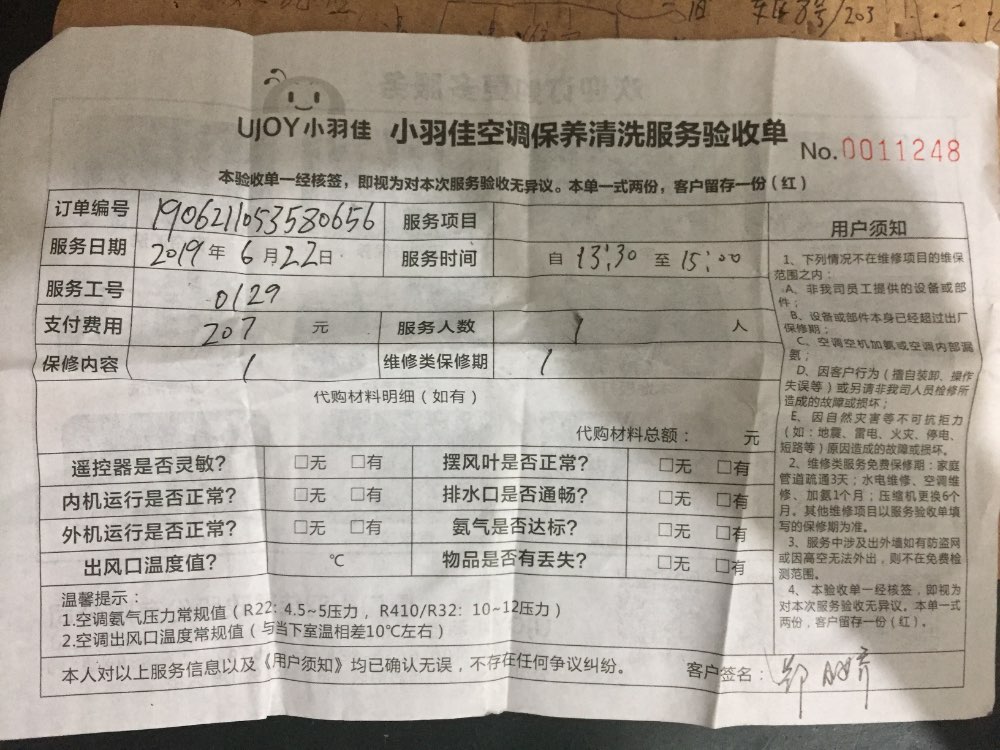 车庄8号/203
UJOY小羽佳 小羽佳空调保养清洗服务验收单
No.0011248
本验收单一经核签，即视为对本次服务验收无异议。本单一式两份，客户留存一份（红）
订单编号 190621105358065​6 服务项目
服务日期 2019年6月22日 服务时间 自 13:30 至 15:00
服务工号 0129
支付费用 207 元 服务人数 1 人
保修内容 / 维修类保修期 /
代购材料明细（如有）
代购材料总额： 元
遥控器是否灵敏? □无 □有 摆风叶是否正常? □无 □有
内机运行是否正常? □无 □有 排水口是否通畅? □无 □有
外机运行是否正常? □无 □有 氨气是否达标? □无 □有
出风口温度值? ℃ 物品是否有丢失? □无 □有
温馨提示：
1.空调氨气压力常规值（R22: 4.5~5压力， R410/R32: 10~12压力）
2.空调出风口温度常规值（与当下室温相差10℃左右）
本人对以上服务信息以及《用户须知》均已确认无误，不存在任何争议纠纷。 客户签名：郑
用户须知
1、下列情况不在维修项目的维保
范围之内：
A、非我司员工提供的设备或部
件；
B、设备或部件本身已经超过出厂
保修期；
C、空调空机加氨或空调内部漏
氨；
D、因客户行为（擅自装卸、操作
失误等）或另请非我司人员检修所
造成的故障或损坏；
E、因自然灾害等不可抗拒力
（如：地震、雷电、火灾、停电、
短路等）原因造成的故障或损坏。
2、维修类服务免费保修期：家庭
管道疏通3天；水电维修、空调维
修、加氨1个月；压缩机更换6个
月。其他维修项目以服务验收单填
写的保修期为准。
3、服务中涉及出外墙如有防盗网
或因高空无法外出，则不在免费检
测范围。
4、本验收单一经核签，即视为
对本次服务验收无异议。本单一式
两份，客户留存一份（红）。